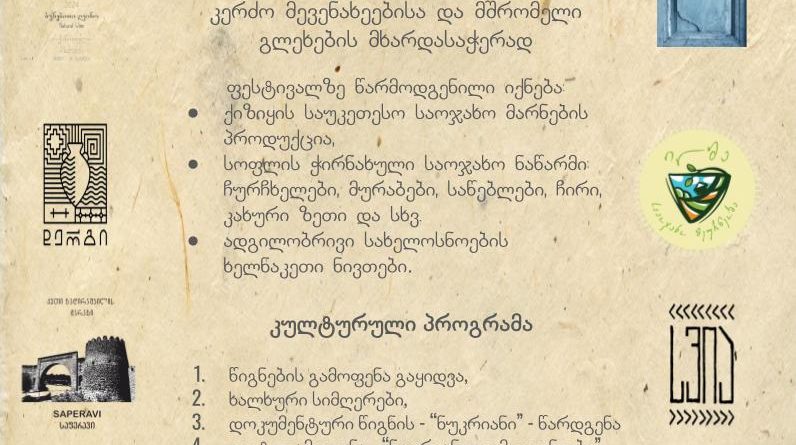 კერძო მევენახეებისა და მშრომელი
გლეხების მხარდასაჭერად
ბუნებრივი ღვინო
ფესტივალზე წარმოდგენილი იქნება:
• ქიზიყის საუკეთესო საოჯახო მარნების
პროდუქცია,
• სოფლის ჭირნახული საოჯახო ნაწარმი:
ჩურჩხელები, მურაბები, საწებლები, ჩირი,
კახური ზეთი და სხვ.
• ადგილობრივი სახელოსნოების
ხელნაკეთი ნივთები.
დერგი
კულტურული პროგრამა
1. წიგნების გამოფენა გაყიდვა,
2. ხალხური სიმღერები,
3. დოკუმენტური წიგნის - “ნუკრიანი” - წარდგენა
4.
SAPERAVI
საფერავი